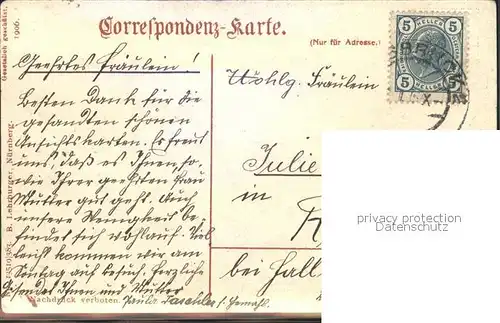 Correspondenz-Karte.
(Nur für Adresse.)
Gesetzlich geschützt.
1906.
5 HELLER 5
5 HELLER 5
Geehrtes Fräulein!
Besten Dank für die
gesandten schönen
Ansichtskarten. Es freut
uns, daß es Ihnen, so
wie Ihrer geehrten Frau
Mutter gut geht. Auch
unsere Wenigkeit be-
findet sich wohlauf. Viel
leicht kommen wir am
Sontag auf besuch. Herzliche
Ihnen und Mutter
Paula Taschler
Wohlg. Fräulein
Julie
in
bei Hall
B. Lehrburger, Nürnberg.
Nachdruck verboten.
privacy protection
Datenschutz